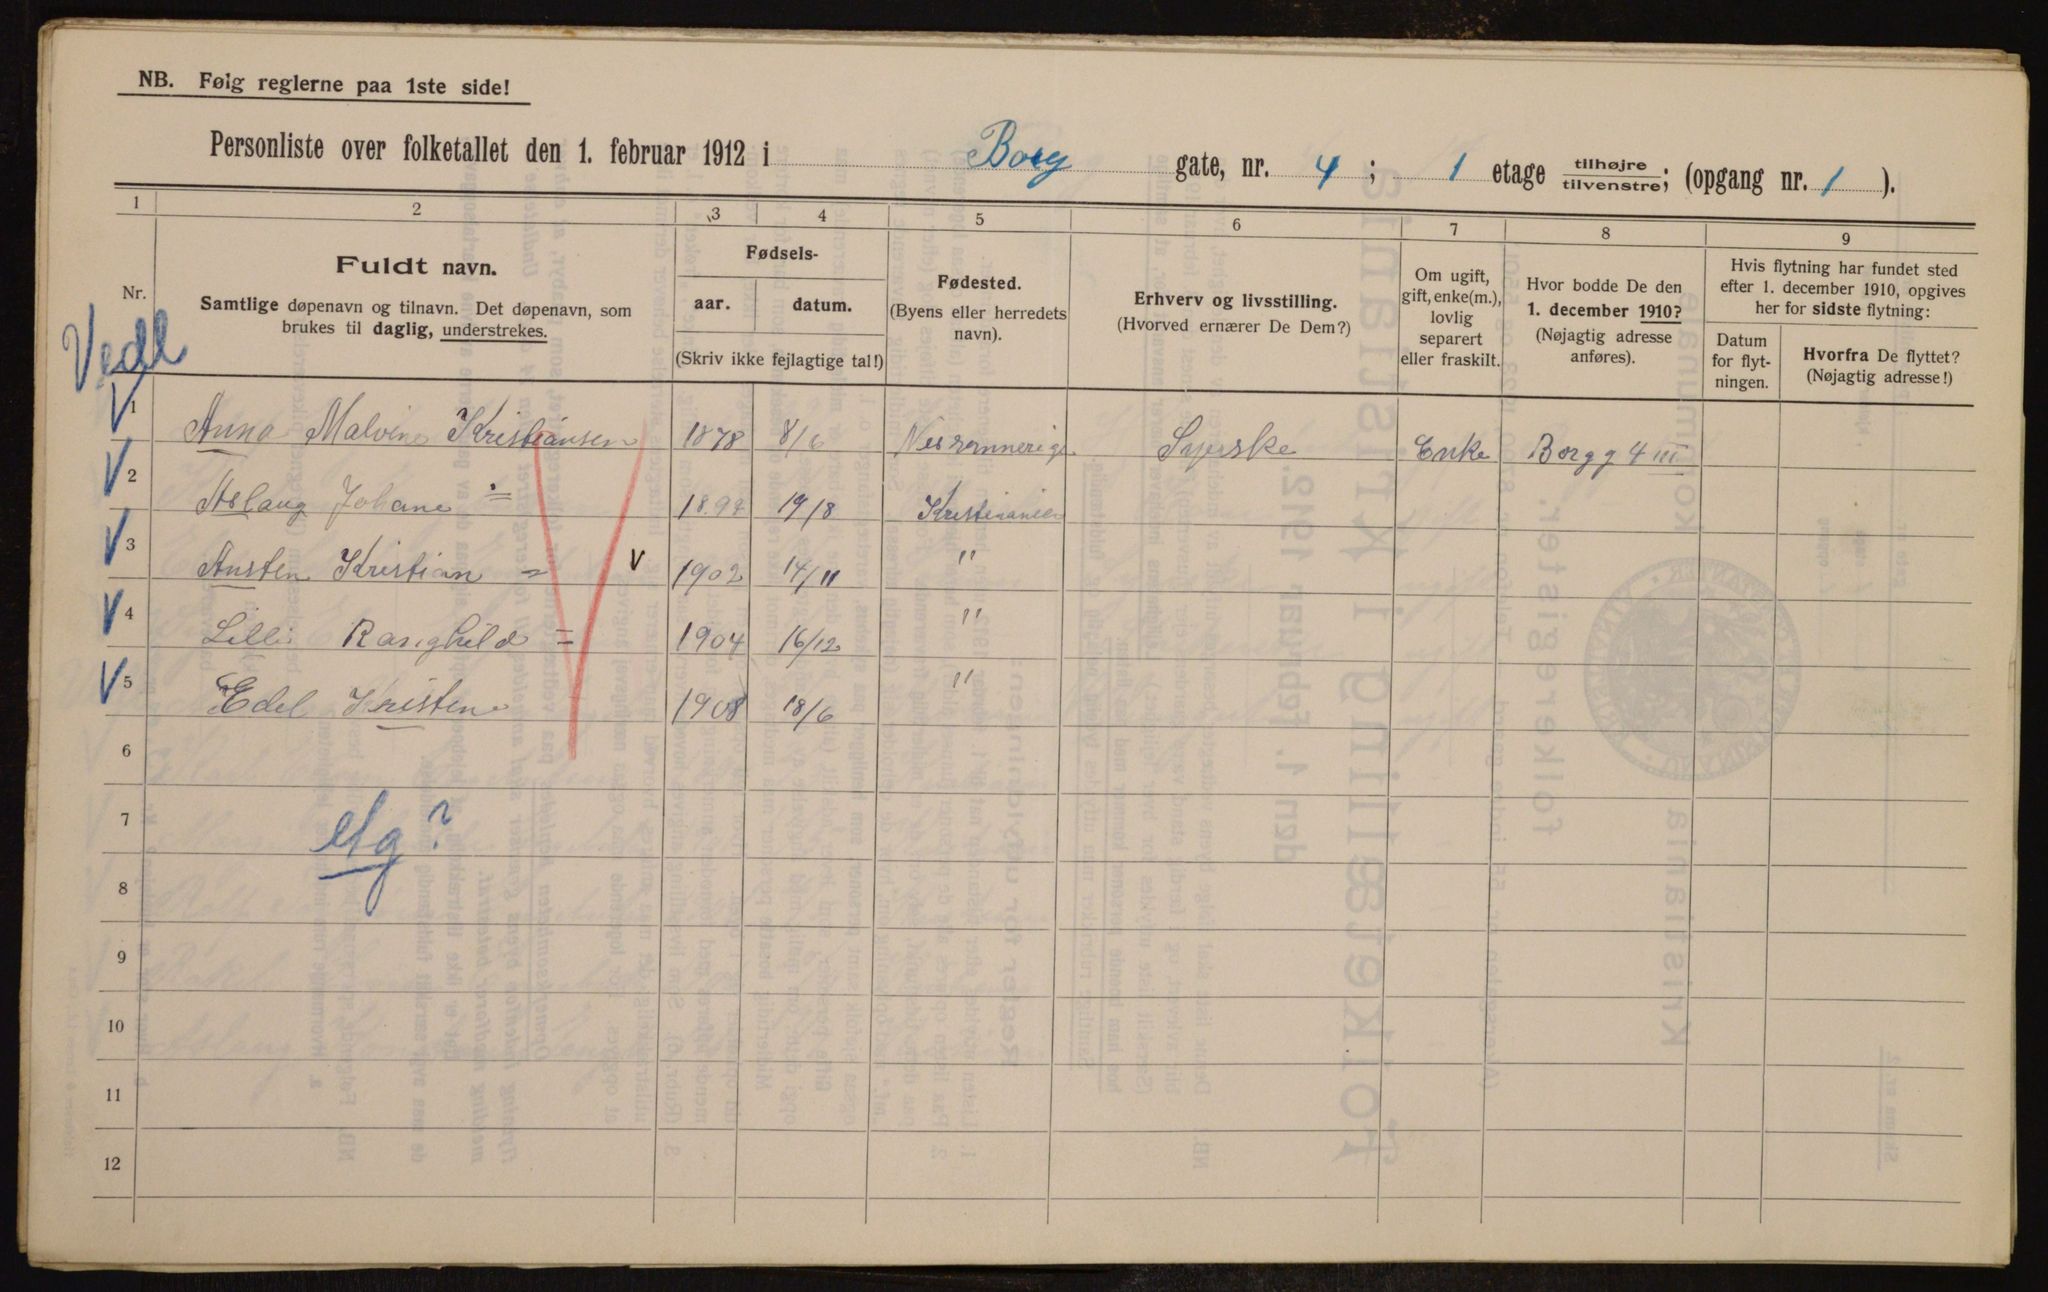 NB. Følg reglerne paa 1ste side!
Personliste over folketallet den 1. februar 1912 i Borg gate, nr. 4 ; 1 etage tilhøjre tilvenstre; (opgang nr. 1 ).
1 2 3 4 5 6 7 8 9
Nr.
Fuldt navn.
Samtlige døpenavn og tilnavn. Det døpenavn, som
brukes til daglig, understrekes.
Fødsels-
aar. datum.
(Skriv ikke fejlagtige tal!)
Fødested.
(Byens eller herredets
navn).
Erhverv og livsstilling.
(Hvorved ernærer De Dem?)
Om ugift,
gift, enke(m.),
lovlig
separert
eller fraskilt.
Hvor bodde De den
1. december 1910?
(Nøjagtig adresse
anføres).
Hvis flytning har fundet sted
efter 1. december 1910, opgives
her for sidste flytning:
Datum
for flyt-
ningen.
Hvorfra De flyttet?
(Nøjagtig adresse!)
Vedl
1 Anna Malvine Kristiansen 1878 8/6 Syerske Enke Borgg 4 III
2 Aslaug Johane = 1899 19/8 Kristiania
3 Austen Kristian = V 1902 14/11 "
4 Lilli Ranghild = 1904 16/12 "
5 Edel Kristene 1908 18/6 "
6
7
8
9
10
11
12